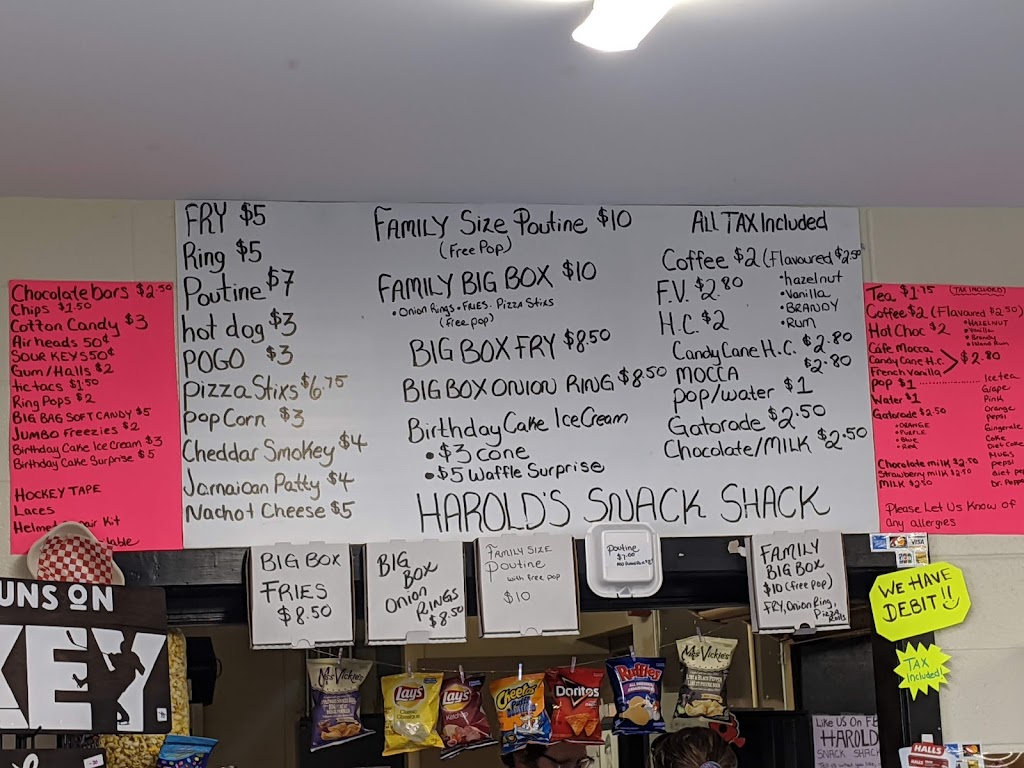 FRY $5
Ring $5
Poutine $7
hot dog $3
POGO $3
Pizza Stixs $6.75
pop Corn $3
Cheddar Smokey $4
Jamaican Patty $4
Nacho + Cheese $5
FAMILY Size Poutine $10
(Free Pop)
FAMILY BIG BOX $10
• Onion Rings • FRIES. Pizza Stixs
(Free pop)
BIG BOX FRY $8.50
BIG BOX ONION RING $8.50
Birthday Cake Ice Cream
• $3 cone
• $5 Waffle Surprise
HAROLD'S SNACK SHACK
All TAX Included
Coffee $2 (Flavoured $2.50
• hazelnut
• Vanilla
• BRANDY
• Rum
F.V. $2.80
H.C. $2
Candy Cane H.C. $2.80
MOCCA $2.80
pop/water $1
Gatorade $2.50
Chocolate/MILK $2.50
Chocolate bars $2.50
Chips $1.50
Cotton Candy $3
Air heads 50¢
SOUR KEYS 50¢
Gum/Halls $2
tic tacs $1.50
Ring Pops $2
BIG BAG SOFT CANDY $5
JUMBO Freezies $2
Birthday Cake Ice Cream $3
Birthday Cake Surprise $5
HOCKEY TAPE
Laces
Helmet Kit
Tea $1.75 (TAX INCLUDED)
Coffee $2 (Flavoured $2.50)
• HAZELNUT
• Vanilla
• Brandy
• Island Rum
Hot Choc $2
Cafe Mocca
Candy Cane H.C. $2.80
French Vanilla
pop $1
Water $1
Gatorade $2.50
• ORANGE
• PURPLE
• Blue
• Red
Ice tea
Grape
Pink
Orange
pepsi
Gingerale
Coke
Diet Coke
MUGS
pepsi
diet
Dr. Peppe
Chocolate milk $2.50
Strawberry milk $2.50
MILK
Please Let Us Know of
any allergies
BIG BOX
FRIES
$8.50
BIG
BOX
Onion
RINGS
$8.50
FAMILY SIZE
Poutine
with free pop
$10
Poutine
$7.00
FAMILY
BIG BOX
$10 (free pop)
FRY, Onion Ring,
Pizza
Rolls
WE HAVE
DEBIT!!
TAX
Included!
VISA
UNS ON
KEY
Miss Vickie's
Lay's
Classic
Lay's
Ketchup
Cheetos
Puffs
Doritos
Ruffles
ALL DRESSED
Miss Vickie's
LIME & BLACK PEPPER
LIKE US ON FB
HAROLD
SNACK SHACK
HALLS
HALLS